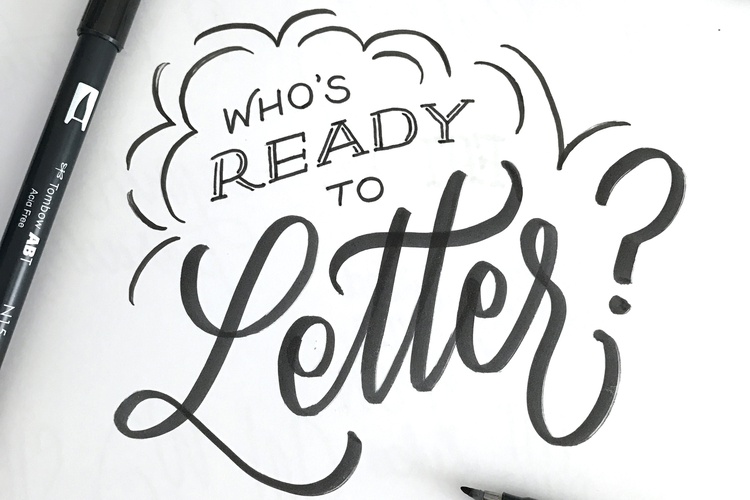 WHO'S
READY
TO
Letter?
Tombow ABT
Acid Free
N15